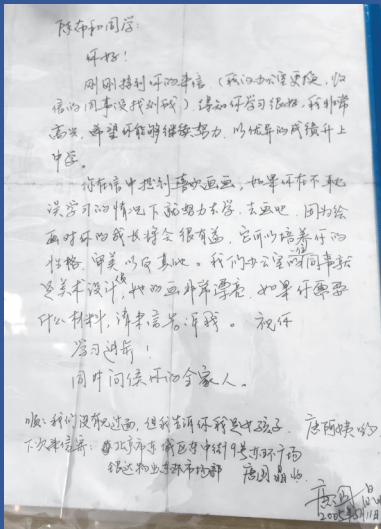 陈布和同学:
你好!
刚刚接到你的来信(我们办公室更换,收
信的同事没找到我)得知你学习很好,我非常
高兴,希望你能够继续努力,以优异的成绩升上
中学。
你在信中提到喜欢画画,如果你在不耽
误学习的情况下就努力去学,去画吧,因为绘
画对你的成长将会很有益,它可以培养你的
性格、审美以及其他。我们办公室的一位同事就
是美术设计,她的画非常漂亮,如果你需要
什么材料,请来信告诉我。祝你
学习进步!
同时问候你的全家人。
顺:我们没有见过面,但我告诉你我是女孩子。 唐阿姨哟
下次来信寄:北京市东城区东中街9号东环广场
银达物业东环市场部 唐圆晶收
2005年 月11日